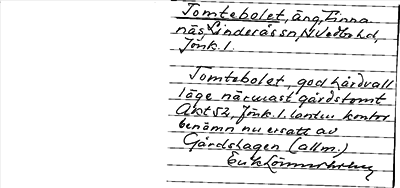 Tomtebolet, äng, Finna
näs, Linderås sn, N Vedbo hd,
Jönk. l.
Tomtebolet, god hårdvall
läge närmast gårdstomt
Akt 52, Jönk. l. lantm kontor
benämn nu ersatt av
Gårdshagen (allm.)
Erik